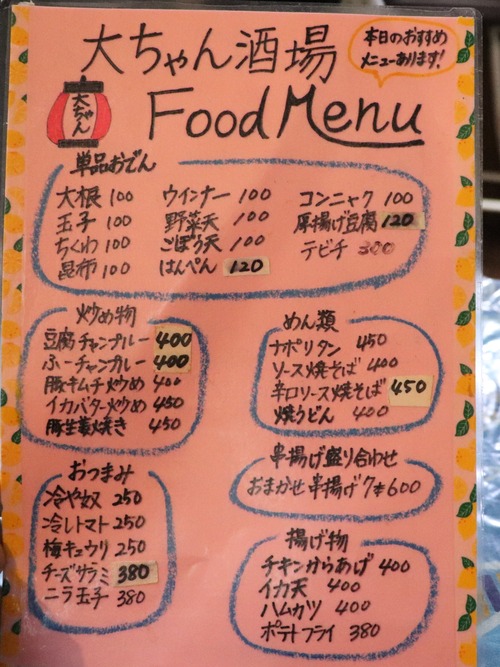 大ちゃん酒場
本日のおすすめ
メニューあります!
大ちゃん
Food Menu
単品おでん
大根 100
玉子 100
ちくわ 100
昆布 100
ウインナー 100
野菜天 100
ごぼう天 100
はんぺん 120
コンニャク 100
厚揚げ豆腐 120
テビチ 380
炒め物
豆腐チャンプルー 400
ふーチャンプルー 400
豚キムチ炒め 400
イカバター炒め 450
豚生姜焼き 450
めん類
ナポリタン 450
ソース焼そば 400
辛口ソース焼そば 450
焼うどん 400
串揚げ盛り合わせ
おまかせ串揚げ7本600
おつまみ
冷や奴 250
冷しトマト 250
梅キュウリ 250
チーズサラミ 380
ニラ玉子 380
揚げ物
チキンからあげ 400
イカ天 400
ハムカツ 400
ポテトフライ 380